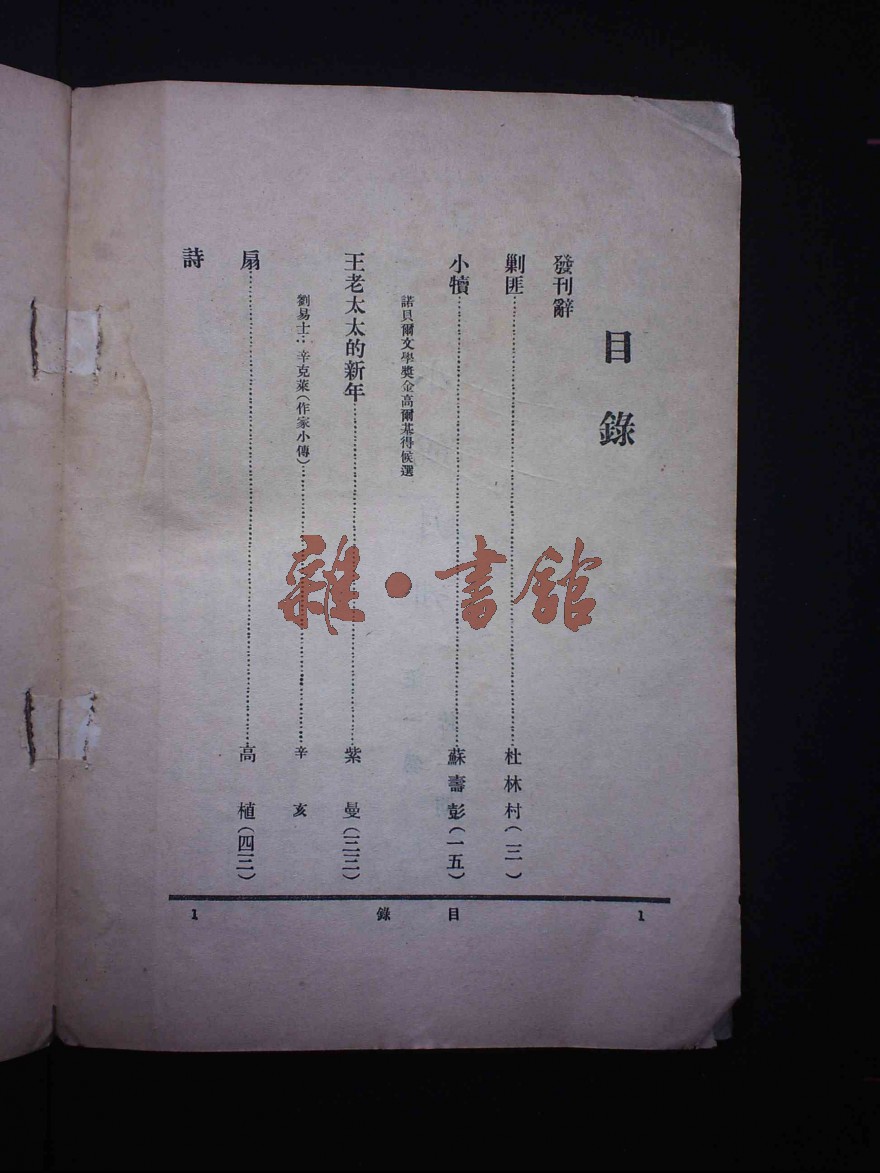 目錄
發刊辭
剿匪……杜林村(三)
小犢……蘇壽彭(一五)
諾貝爾文學獎金高爾基得候選
王老太太的新年……紫曼(三三)
劉易士:辛克萊(作家小傳)……辛亥
扇……高植(四三)
詩
1 目錄 1
雜·書館